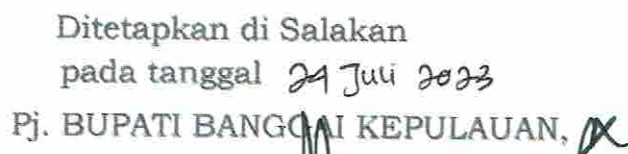 Ditetapkan di Salakan
pada tanggal 24 Juli 2023
Pj. BUPATI BANGGAI KEPULAUAN,